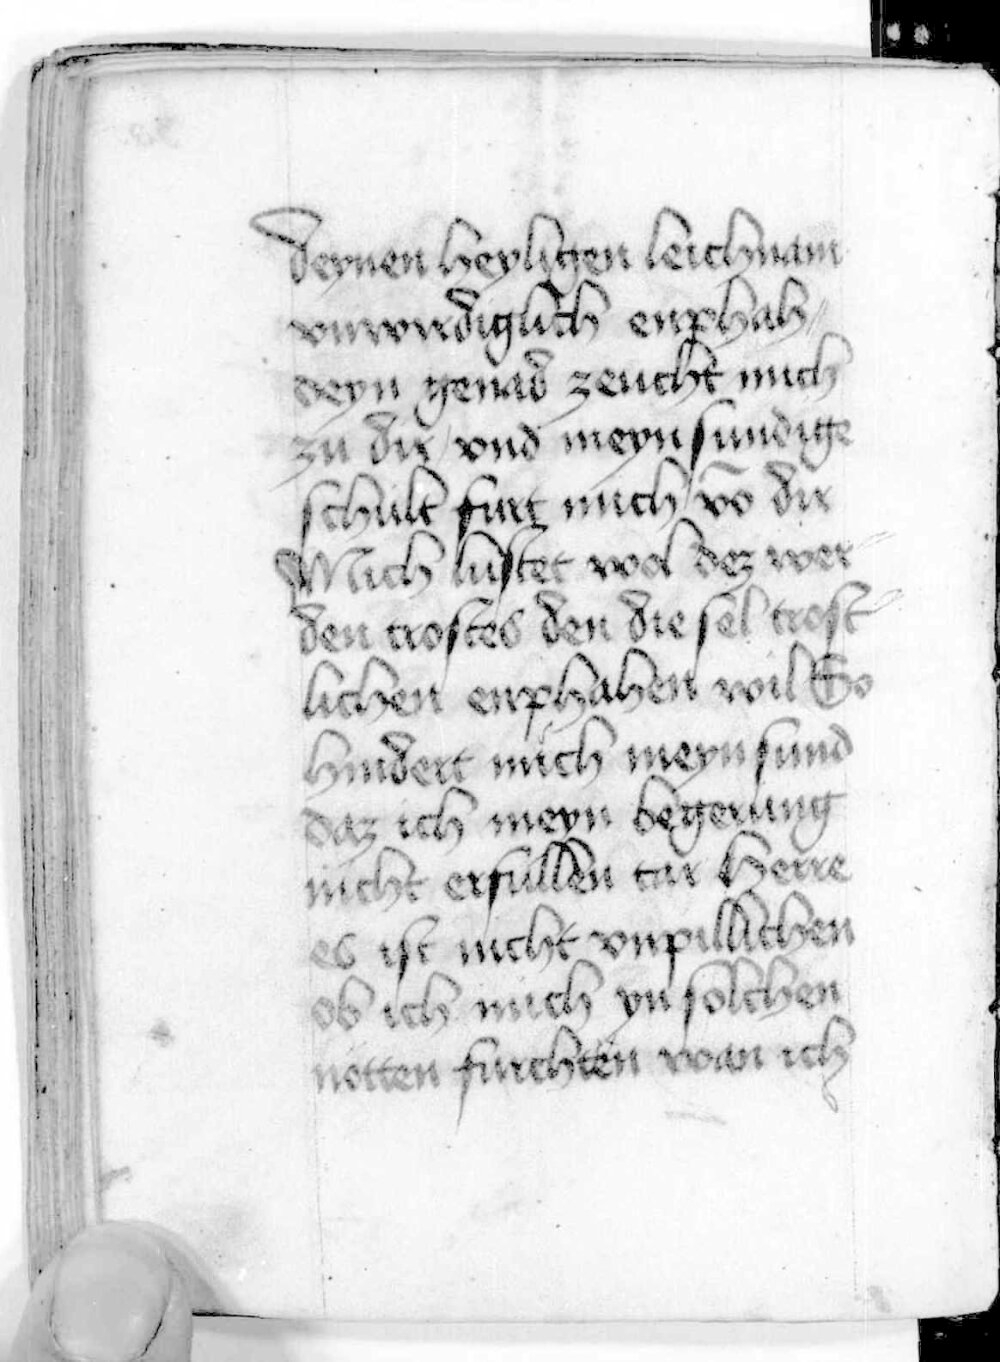 deynen heyligen leichnam
vnwirdiglich enphah /
deyn genad zeucht mich
zu dir / vnd meyn sundige
schult furt mich vō dir
Mich lustet wol dez wer
den trostes den die sel trost
lichen enphahen wil So
hindert mich meyn sund
daz ich meyn begerung
nicht erfullen tar Herre
es ist nicht vnpillichen
ob ich mich yn solchen
nötten furchten wan ich